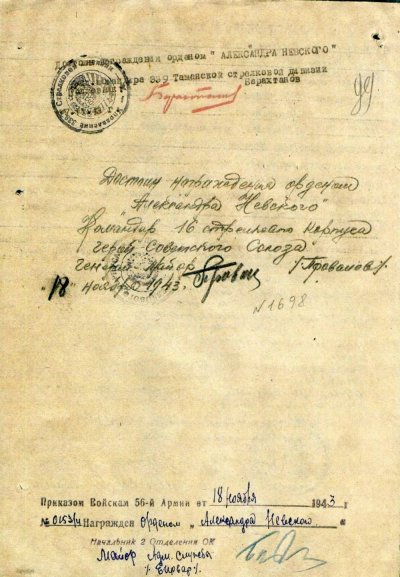 Достоин награждения орденом "АЛЕКСАНДРА НЕВСКОГО"
Командира 339 Таманской стрелковой дивизии
Барахтанов
99
Достоин награждения орденом
Александра Невского"
Командир 16 стрелкового корпуса
Герой Советского Союза"
генерал майор /Провалов/.
"18" ноября 1943.
N 1698
Приказом Войскам 56-й Армии от 18 ноября 1943 г
№ 0153/н Награжден орденом „Александра Невского"
Начальник 2 Отделения ОК
Майор Адм. службы